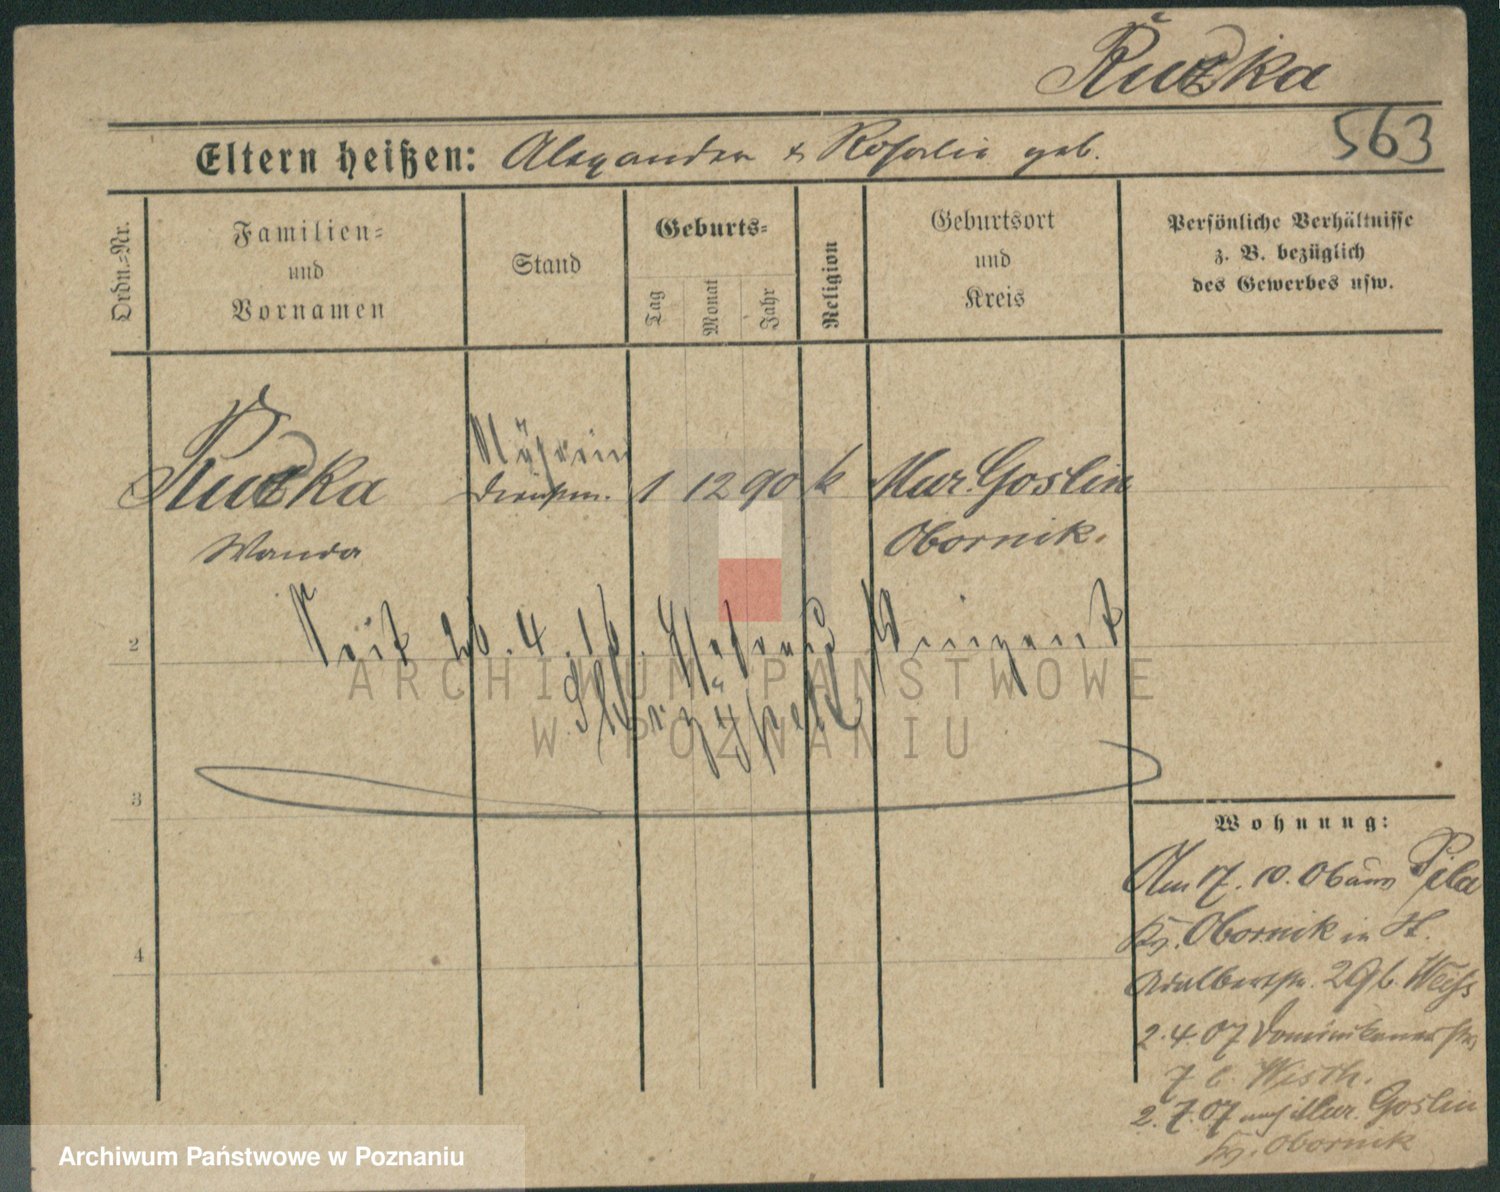 Ruczka
563
Eltern heißen: Alexander & Rosalie geb.
Ordn.-Nr.
Familien-
und
Vornamen
Stand
Geburts-
Tag
Monat
Jahr
Religion
Geburtsort
und
Kreis
Persönliche Verhältnisse
z. B. bezüglich
des Gewerbes usw.
Ruczka
Wanda
Näherin
1 12 90 k
Mur. Goslin
Obornik.
2
Seit 26.4.16. Ehefrau
ARCHIWUM PAŃSTWOWE
W POZNANIU
3
4
Wohnung:
Am 17.10.06 aus Pila
Kr. Obornik in St.
Adalbertstr. 29 b. Weiss
2.4.07 Dominikanerstr.
7 b.
2.7.07 nach Mur. Goslin
Kr. Obornik
Archiwum Państwowe w Poznaniu